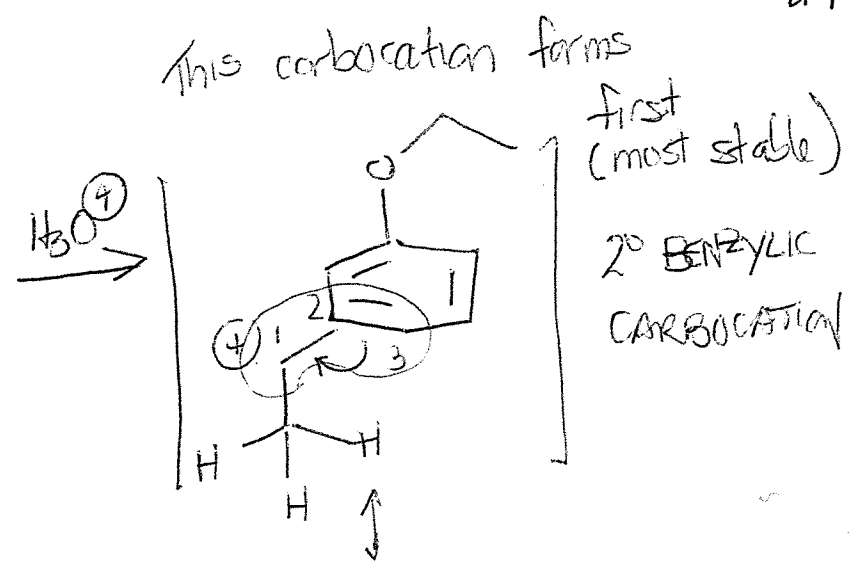 This carbocation forms
first
(most stable)
H₃O⊕
O
2° BENZYLIC
CARBOCATION
2
⊕ 1
3
H H
H